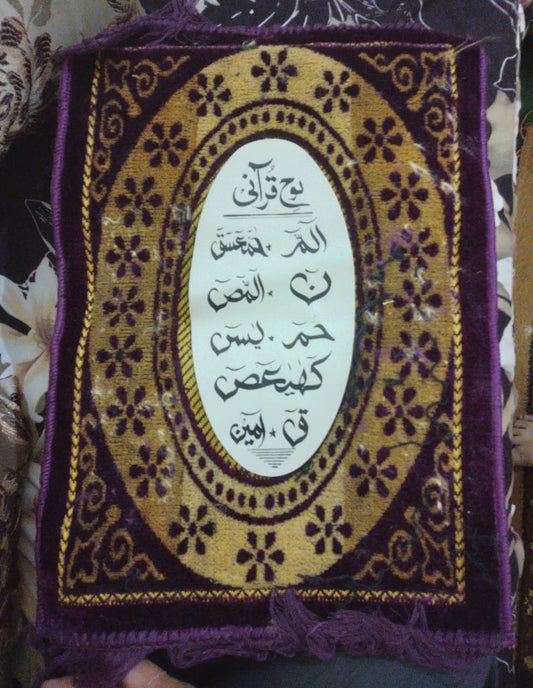 لوح قرآنی
الٓمّٓ ٭ حٰمٓعٓسٓقٓ
نٓ ٭ الٓمّٓصٓ
حٰمٓ ٭ یٰسٓ
كٓهٰیٰعٓصٓ
قٓ ٭ آمین